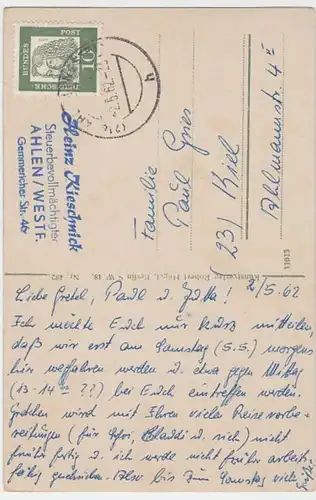 DEUTSCHE BUNDESPOST
10
Heinz Kieschnick
Steuerbevollmächtigter
AHLEN/WESTF.
Gemmericher Str. 46
Familie
Paul Gries
(23) Kiel
Kunstverlag Robert Berlin S.W. 48. Nr. 482
2/5.62
Liebe Gretel, Paul u. Jutta!
Ich möchte Euch nur kurz mitteilen,
daß wir erst am Samstag (5.5.) morgens
hier wegfahren werden u. etwa gegen Mittag
(13-14 ??) bei Euch eintreffen werden.
Gretchen wird mit Ihren viele Reisevorbe-
reitungen (für u. sich) nicht
früher fertig u. ich werde nicht früher arbeits-
fähig geschrieben. Also bis zum Samstag